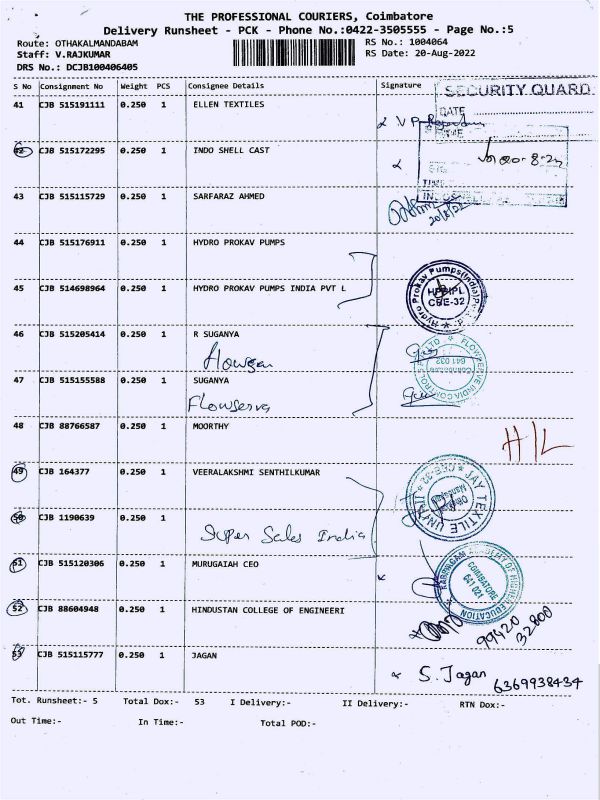 THE PROFESSIONAL COURIERS, Coimbatore
Delivery Runsheet - PCK - Phone No.:0422-3505555 - Page No.:5
Route: OTHAKALMANDABAM
RS No.: 1004064
Staff: V.RAJKUMAR
RS Date: 20-Aug-2022
DRS No.: DCJB100406405
S No Consignment No Weight PCS Consignee Details Signature
SECURITY GUARD
DATE
41 CJB 515191111 0.250 1 ELLEN TEXTILES
TIME
42 CJB 515172295 0.250 1 INDO SHELL CAST
TIME
43 CJB 515115729 0.250 1 SARFARAZ AHMED
20/8/22
44 CJB 515176911 0.250 1 HYDRO PROKAV PUMPS
45 CJB 514698964 0.250 1 HYDRO PROKAV PUMPS INDIA PVT L
Hydro Prokav Pumps(India)Pvt. Ltd.
HPPIPL
CBE-32
46 CJB 515205414 0.250 1 R SUGANYA
FLOWSERVE INDIA CONTROLS
Coimbatore
641 032
47 CJB 515155588 0.250 1 SUGANYA
Flowserve
48 CJB 88766587 0.250 1 MOORTHY
H/L
49 CJB 164377 0.250 1 VEERALAKSHMI SENTHILKUMAR
JAY TEXTILE UNIT
CBE-32
50 CJB 1190639 0.250 1
Super Sales India
51 CJB 515120306 0.250 1 MURUGAIAH CEO
KARPAGAM ACADEMY OF HIGHER EDUCATION
COIMBATORE
641 021
52 CJB 88604948 0.250 1 HINDUSTAN COLLEGE OF ENGINEERI
99420
32800
53 CJB 515115777 0.250 1 JAGAN
S. Jagan
6369938434
Tot. Runsheet:- 5 Total Dox:- 53 I Delivery:- II Delivery:- RTN Dox:-
Out Time:- In Time:- Total POD:-